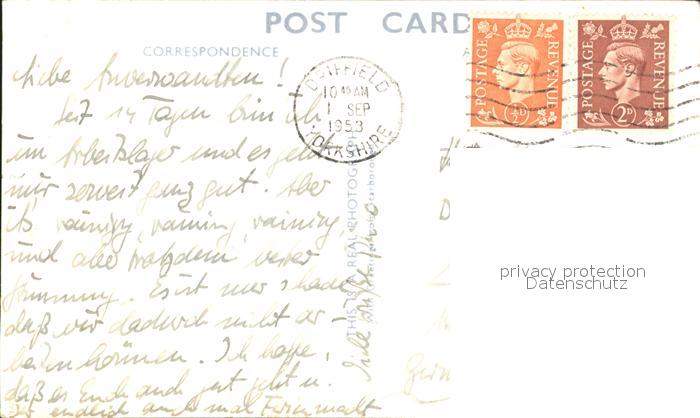 POST CARD
CORRESPONDENCE
POSTAGE REVENUE
½D
POSTAGE REVENUE
2D
DRIFFIELD
10 45 AM
1 SEP
1953
YORKSHIRE
Liebe Anverwandten!
Seit 14 Tagen bin ich
im Arbeitslager und es geht
mir soweit ganz gut. Aber
it's raining, raining, raining,
und alle trotzdem bester
Stimmung. Es ist nur schade
daß wir dadurch nicht ar-
beiten können. Ich hoffe,
daß es Euch auch gut geht u.
Ihr endlich auch mal Ferien
THIS IS A REAL PHOTOGRAPH
Viele
privacy protection
Datenschutz